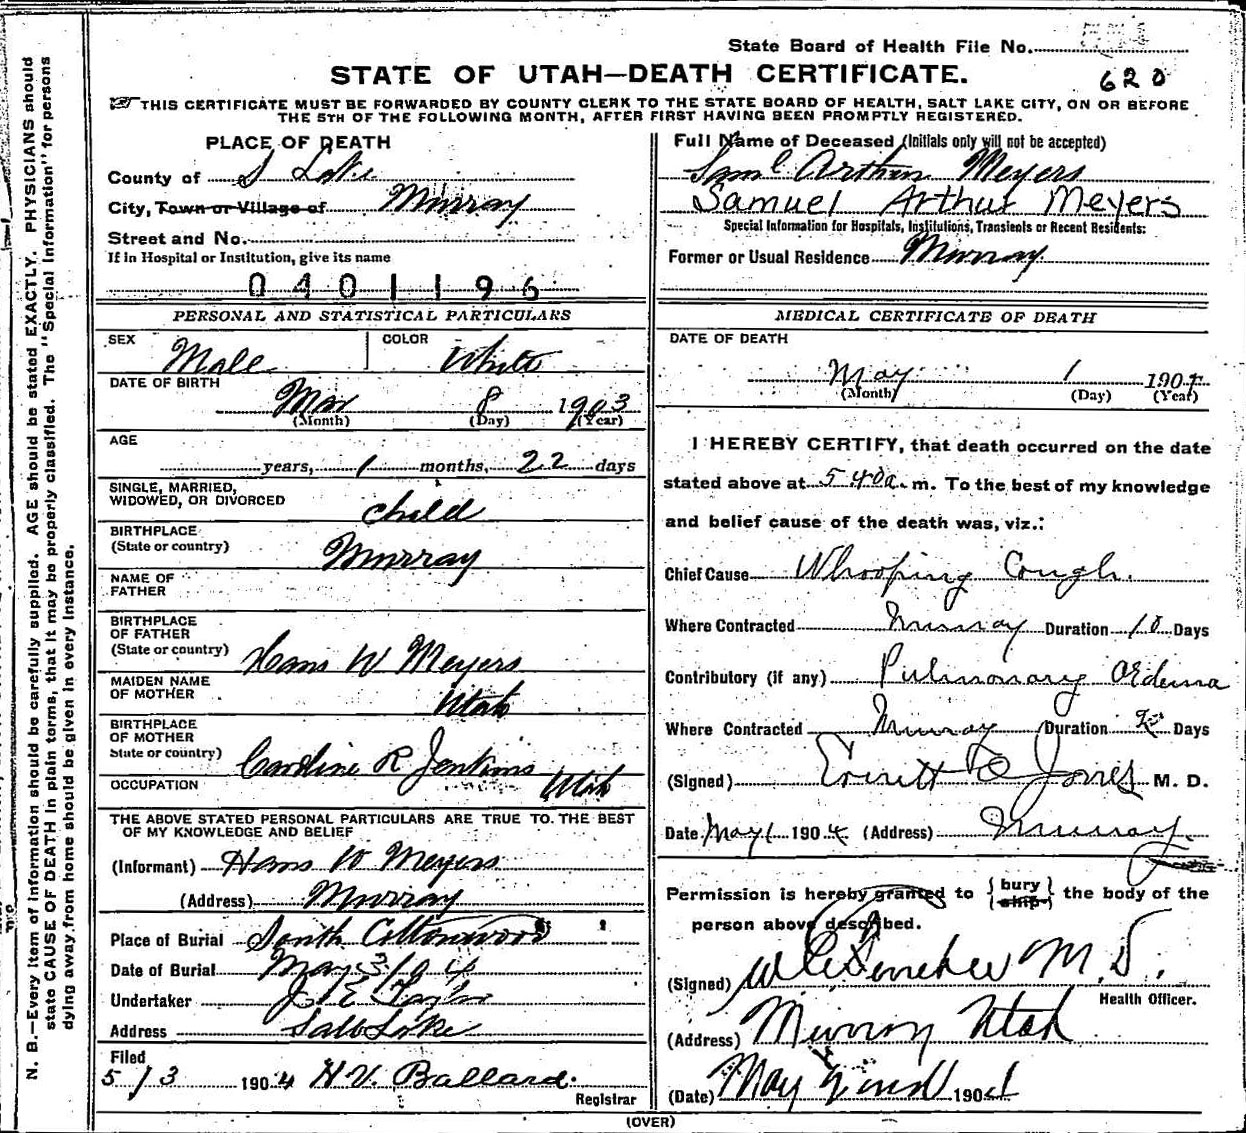 State Board of Health File No.
620
STATE OF UTAH—DEATH CERTIFICATE.
THIS CERTIFICATE MUST BE FORWARDED BY COUNTY CLERK TO THE STATE BOARD OF HEALTH, SALT LAKE CITY, ON OR BEFORE
THE 5TH OF THE FOLLOWING MONTH, AFTER FIRST HAVING BEEN PROMPTLY REGISTERED.
PLACE OF DEATH
County of S Lake
City, Town or Village of Murray
Street and No.
If in Hospital or Institution, give its name
0401196
Full Name of Deceased (Initials only will not be accepted)
Saml Arthur Meyers
Samuel Arthur Meyers
Special Information for Hospitals, Institutions, Transients or Recent Residents:
Former or Usual Residence Murray
PERSONAL AND STATISTICAL PARTICULARS
SEX Male COLOR White
DATE OF BIRTH
Mar 8 1903
(Month) (Day) (Year)
AGE
years, 1 months, 22 days
SINGLE, MARRIED,
WIDOWED, OR DIVORCED child
BIRTHPLACE
(State or country) Murray
NAME OF
FATHER
BIRTHPLACE
OF FATHER
(State or country) Hans W Meyers
MAIDEN NAME
OF MOTHER Utah
BIRTHPLACE
OF MOTHER
State or country) Caroline R Jenkins
OCCUPATION Utah
THE ABOVE STATED PERSONAL PARTICULARS ARE TRUE TO THE BEST
OF MY KNOWLEDGE AND BELIEF
(Informant) Hans W Meyers
(Address) Murray
Place of Burial South Cottonwood
Date of Burial May 3 1904
Undertaker J E Taylor
Address Salt Lake
Filed
5/3 1904 H. V. Ballard.
Registrar
MEDICAL CERTIFICATE OF DEATH
DATE OF DEATH
May 1 1904
(Month) (Day) (Year)
I HEREBY CERTIFY, that death occurred on the date
stated above at 5 40 a. m. To the best of my knowledge
and belief cause of the death was, viz.:
Chief Cause Whooping Cough.
Where Contracted Murray Duration 10 Days
Contributory (if any) Pulmonary Œdema
Where Contracted Murray Duration 2 Days
(Signed) Jones M. D.
Date May 1 1904 (Address) Murray
Permission is hereby granted to {bury
ship} the body of the
person above described.
(Signed) M. D.
Health Officer.
(Address) Murray Utah
(Date) May 2nd 1904
(OVER)
N. B.—Every item of information should be carefully supplied. AGE should be stated EXACTLY. PHYSICIANS should
state CAUSE OF DEATH in plain terms, that it may be properly classified. The "Special Information" for persons
dying away from home should be given in every instance.